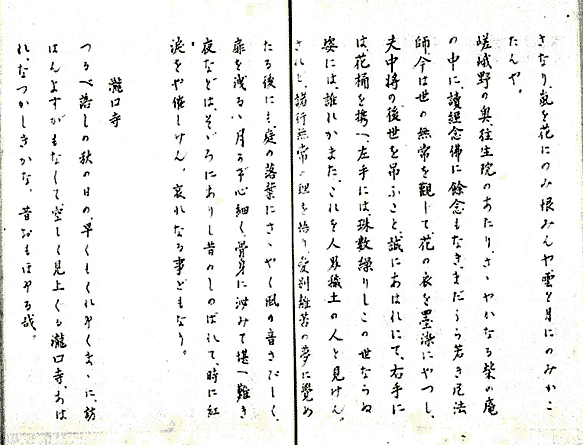 さなり、嵐を花にのみ恨みんや雲を月にのみかこ
たんや。
嵯峨野の奥往生院のあたり、さゝやかなる柴の庵
の中に、讀經念佛に餘念もなき、まだうら若き尼法
師、今は世の無常を觀じて、花の衣を墨染にやつし、
夫中将の後世を弔ふこと、誠にあはれにて、右手に
は、花桶を携へ、左手には、珠数繰りしこの世ならぬ
姿には、誰れかまた、これを人界穢土の人と見けん。
されど、諸行無常の理を悟り、愛別離苦の夢に覺め
たる後にも、庭の落葉にさゝやく風の音さびしく、
扉を洩るゝ月かげ心細く、骨身に泌みて堪へ難き
夜などは、そゞろにありし昔のしのばれて、時に紅
涙をや催しけん。哀れなる事どもなり。
瀧口寺
つるべ落しの秋の日の、早くもくれゆくまゝに、訪
はんよすがもなくて、空しく見上ぐる瀧口寺、あは
れ、なつかしきかな。昔おもほゆる哉。